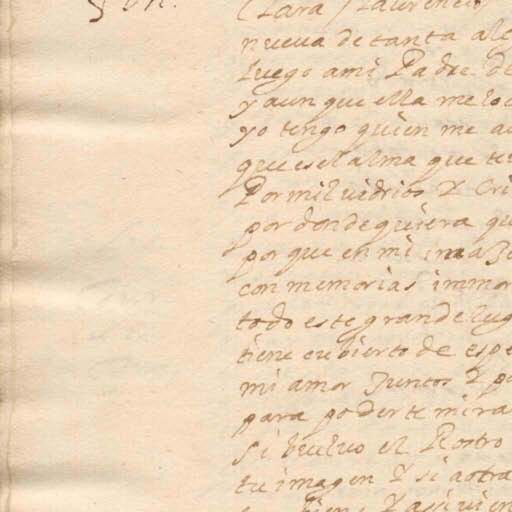 Clara / Laurencio
nueua de tanta ale
luego ami Padre de
y aun que ella me lo
yo tengo quien me a
que es el alma que te
Por mil uidrios Y Cri
por donde quiera qu
por que en mi ima
con memorias immor
todo este grande lug
tiene cubierto de espe
mi amor Juntos Y po
para poderte mira
si bueluo el Rostro
tu imagen Y si aotra